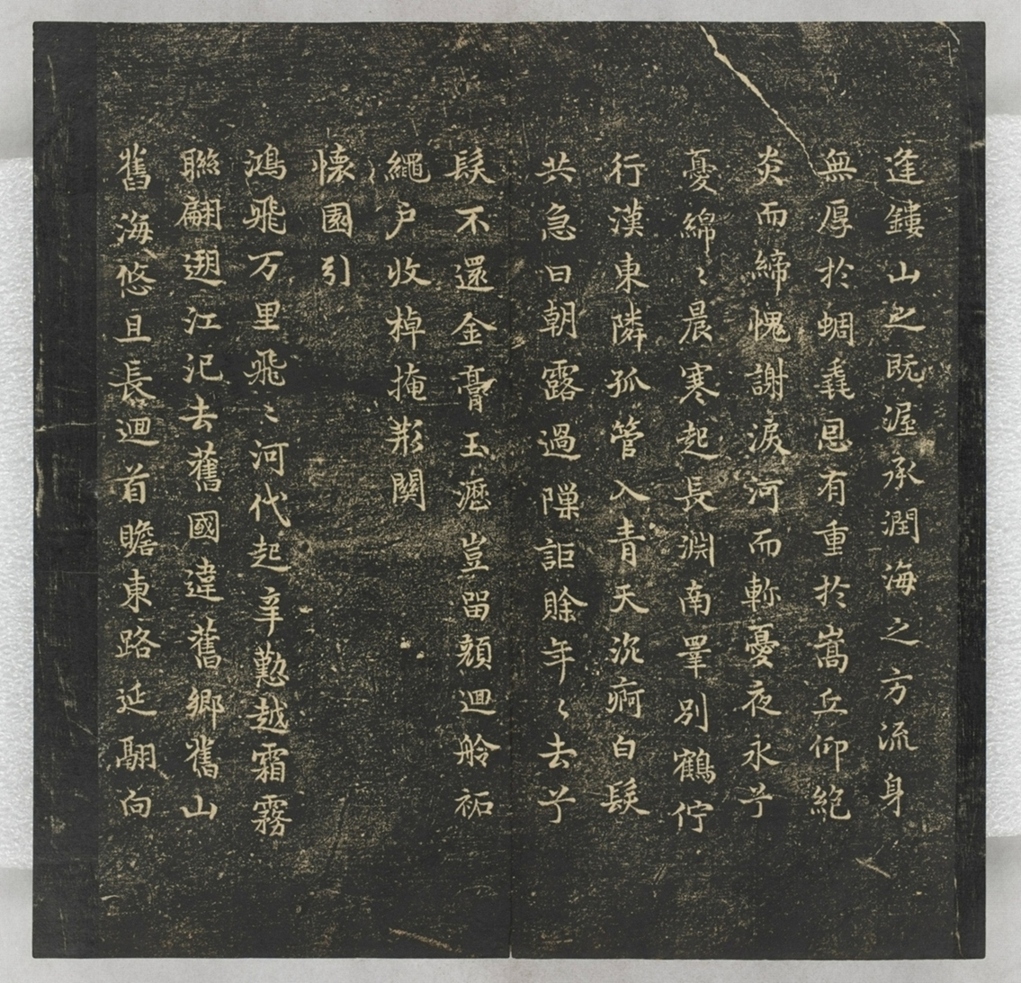 逢鏤山之既渥承潤海之方流身
無厚於蜩毳恩有重於嵩丘仰絶
炎而締愧謝淚河而慙憂夜永兮
憂綿〻晨寒起長淵南睪別鶴佇
行漢東隣孤管入青天沉痾白髮
共急日朝露過隟詎賖年〻去兮
髮不還金膏玉瀝豈畄顔迴舲祏
繩户收棹掩荆関
懐園引
鴻飛万里飛〻河代起辛懃越霜霧
聮翩遡江汜去舊國違舊鄉舊山
舊海悠且長迴首瞻東路延翮向